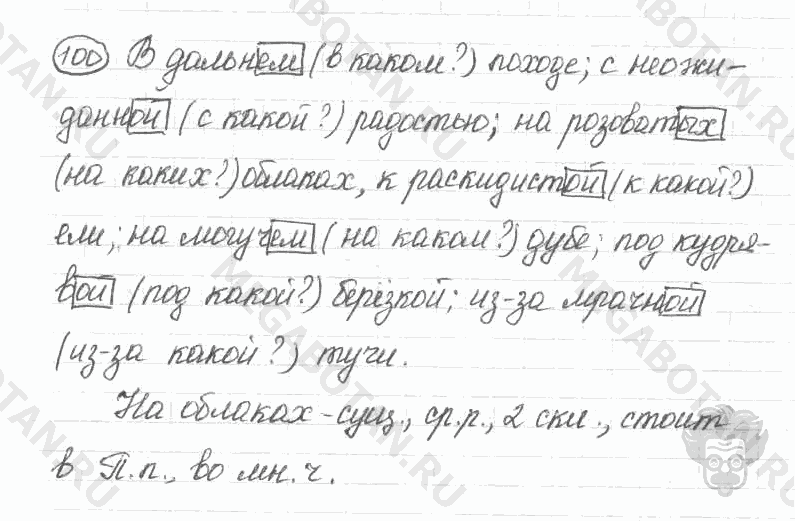 100 В дальнем (в каком?) походе; с неожи-
данной (с какой?) радостью; на розоватых
(на каких?) облаках, к раскидистой (к какой?)
ели; на могучем (на каком?) дубе; под кудря-
вой (под какой?) берёзкой; из-за мрачной
(из-за какой?) тучи.
На облаках - сущ., ср.р., 2 скл., стоит
в П.п., во мн.ч.
MEGABOTAN.RU